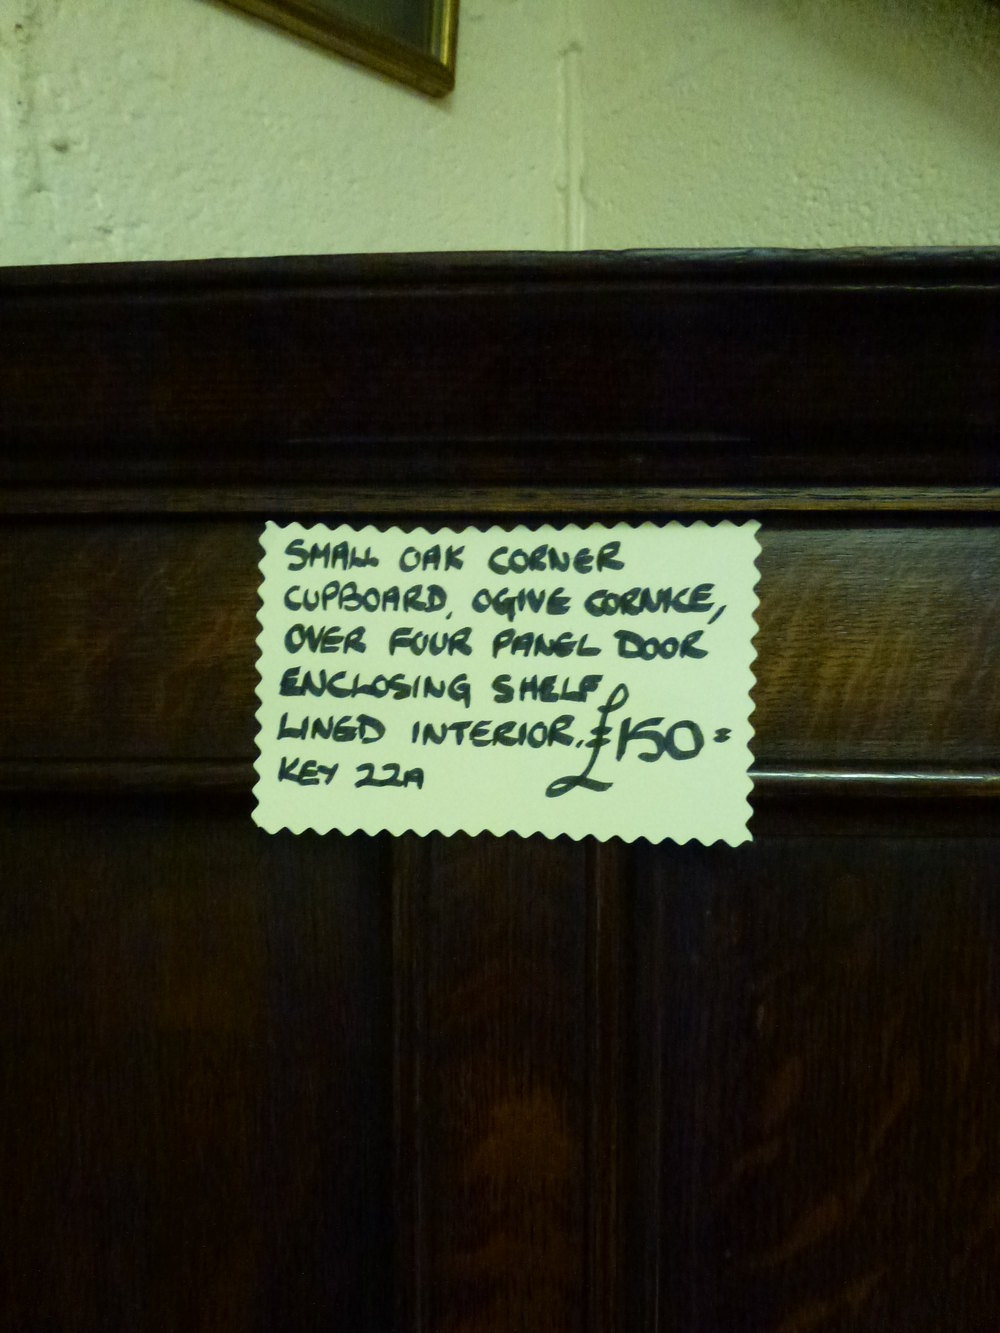 SMALL OAK CORNER
CUPBOARD, OGIVE CORNICE,
OVER FOUR PANEL DOOR
ENCLOSING SHELF
LINED INTERIOR. £150=
KEY 22A